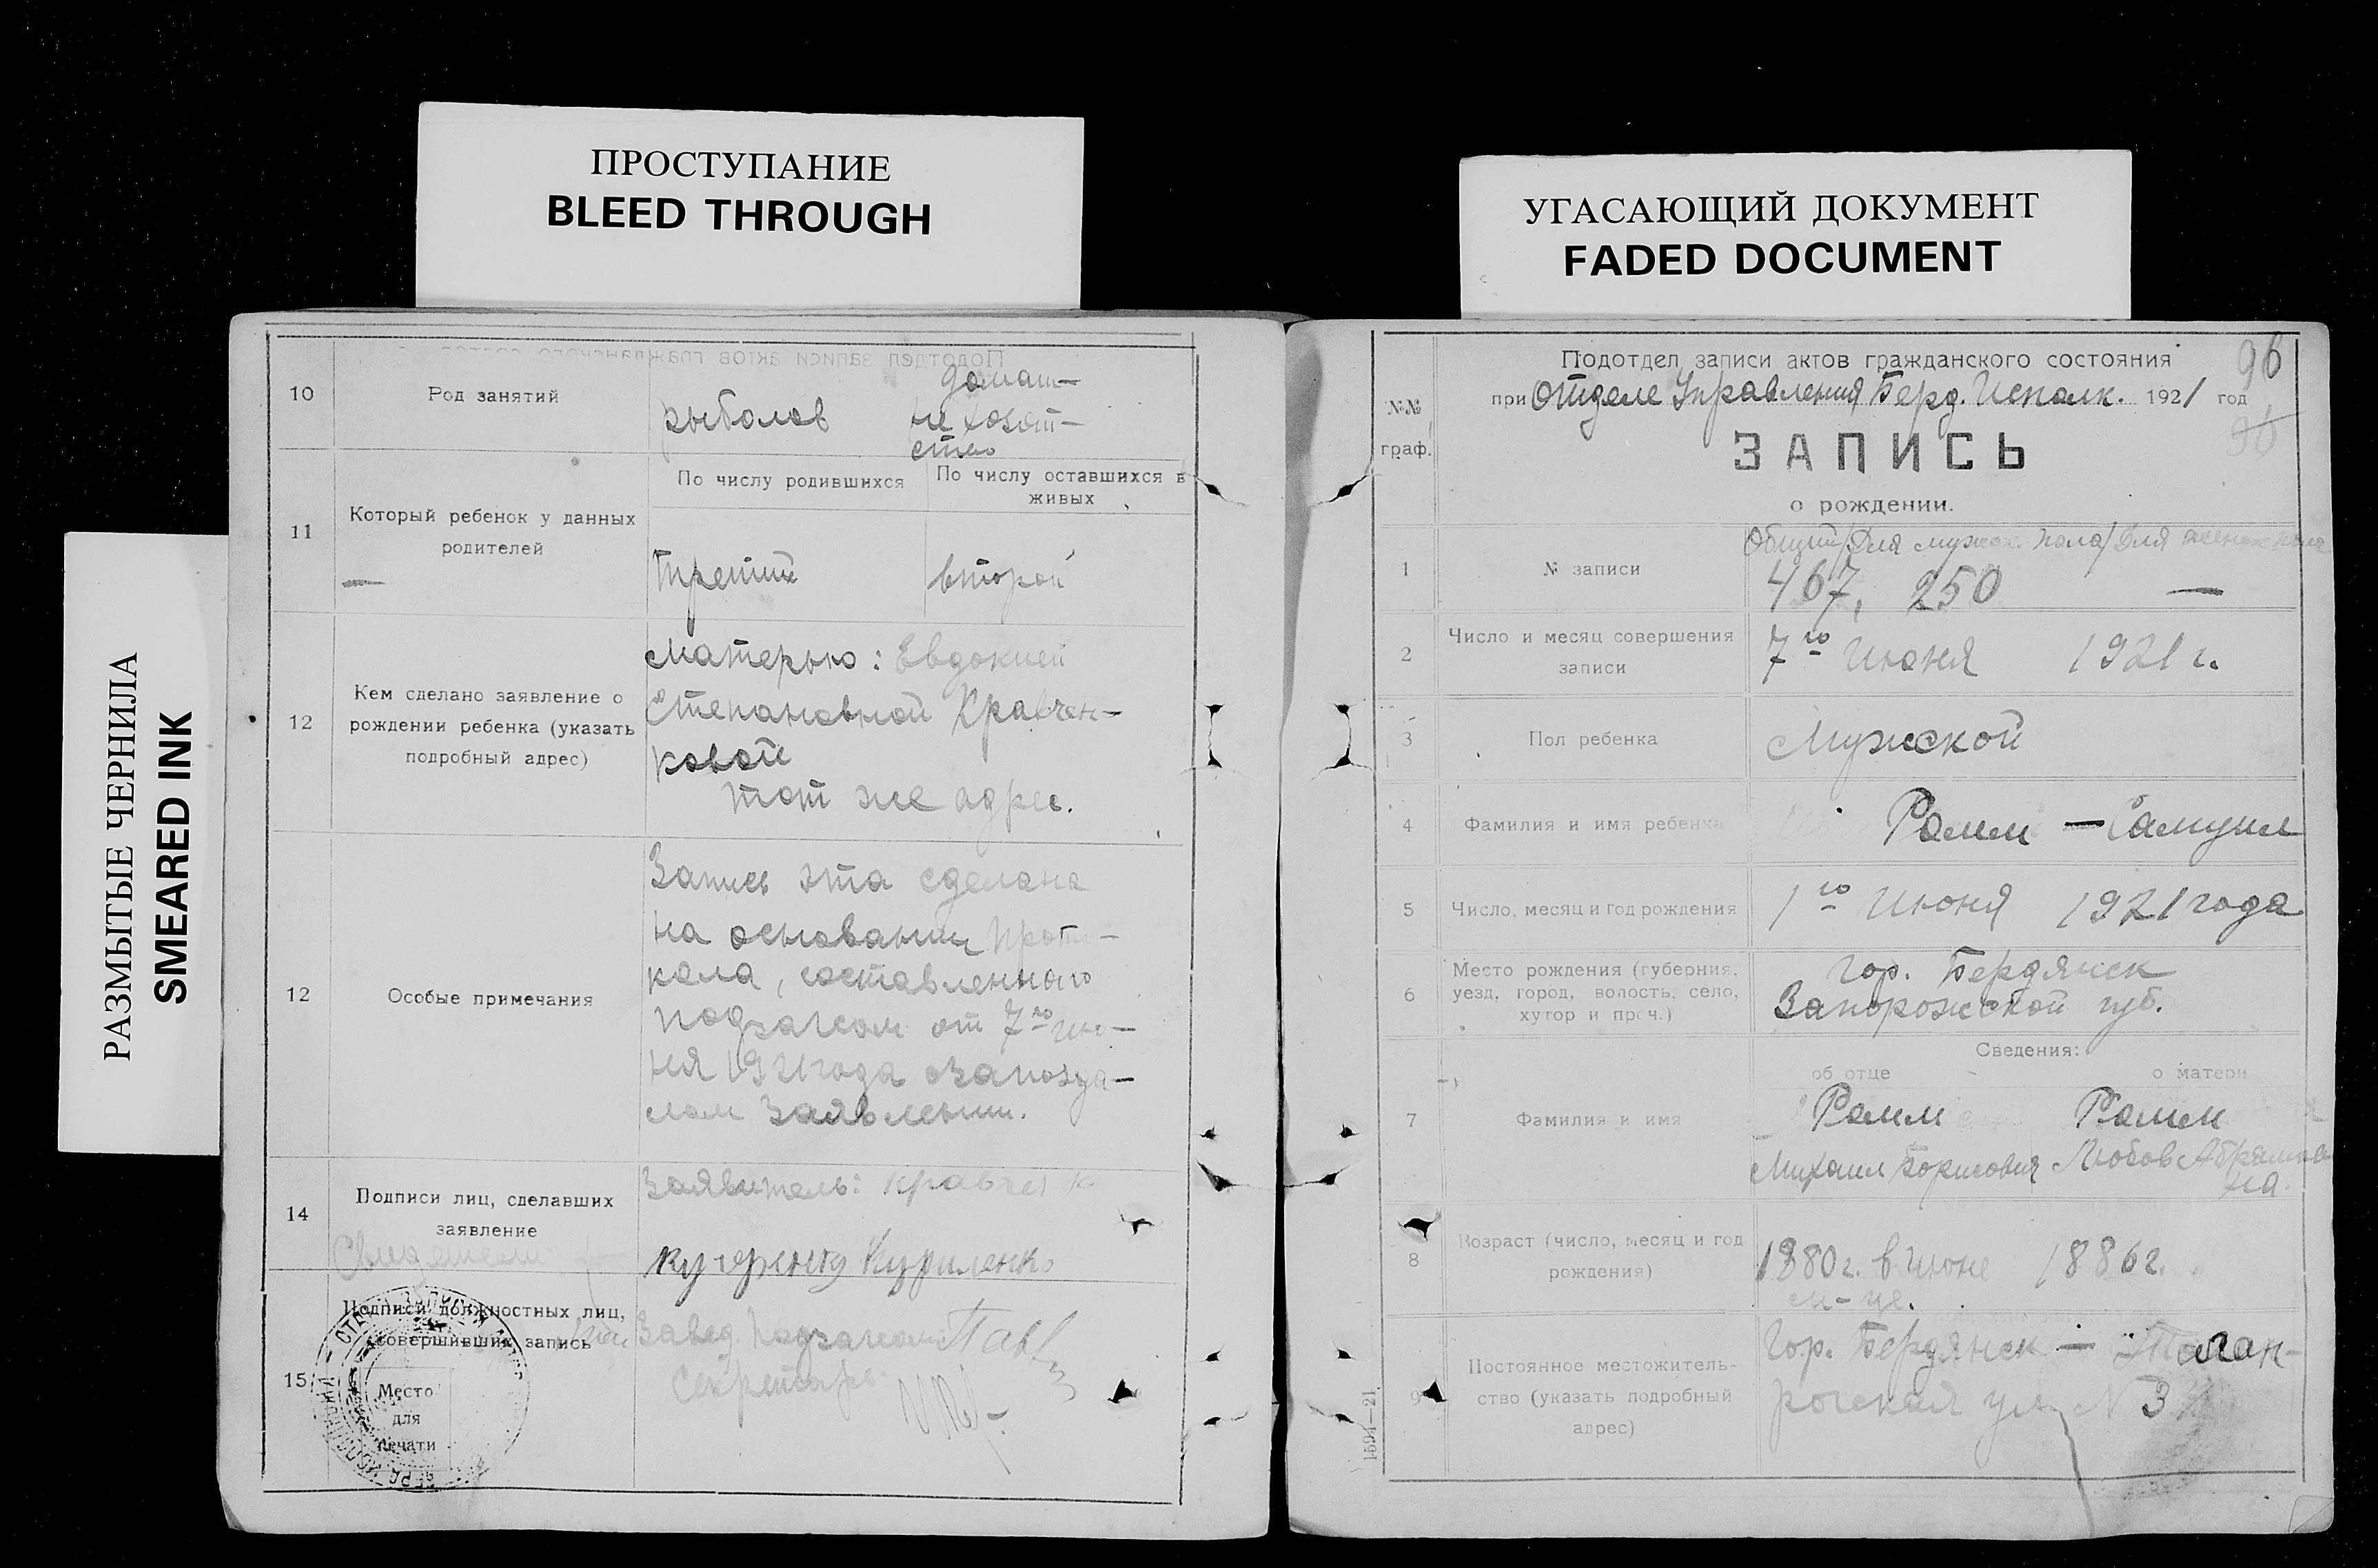 ПРОСТУПАНИЕ
BLEED THROUGH
УГАСАЮЩИЙ ДОКУМЕНТ
FADED DOCUMENT
РАЗМЫТЫЕ ЧЕРНИЛА
SMEARED INK
10 Род занятий
рыболов
домаш-
нее хозяй-
ство
11 Который ребенок у данных
родителей
По числу родившихся
По числу оставшихся в
живых
Третий
второй
12 Кем сделано заявление о
рождении ребенка (указать
подробный адрес)
Матерью: Евдокией
Степановной Кравчен-
ковой
тот же адрес.
12 Особые примечания
Запись эта сделана
на основании прото-
кола, составленного
подзагсом от 7го ию-
ня 1921 года о запозда-
лом заявлении.
14 Подписи лиц, сделавших
заявление
Заявитель:
Куриленко
15 Подписи должностных лиц,
совершивших запись
Место
для
печати
Завед. подзагсом
Секретарь:
96
Подотдел записи актов гражданского состояния
при Отделе Управления Берд. Исполк. 1921 год
№№
граф.
ЗАПИСЬ
о рождении.
Общий/Для мужск. пола/Для женск пола
1 № записи
467, 250 —
2 Число и месяц совершения
записи
7го Июня 1921 г.
3 Пол ребенка
Мужской
4 Фамилия и имя ребенка
Рамм — Самуил
5 Число, месяц и год рождения
1го Июня 1921 года
6 Место рождения (губерния,
уезд, город, волость, село,
хутор и проч.)
Гор. Бердянск
Запорожской губ.
Сведения:
об отце о матери
7 Фамилия и имя
Рамм Рамм
Михаил Борисович Любовь Абрамов
на.
8 Возраст (число, месяц и год
рождения)
1880 г. в июне 1886 г.
м-це.
9 Постоянное местожитель-
ство (указать подробный
адрес)
Гор. Бердянск — Таган-
рогская ул. № 3
1594—21.